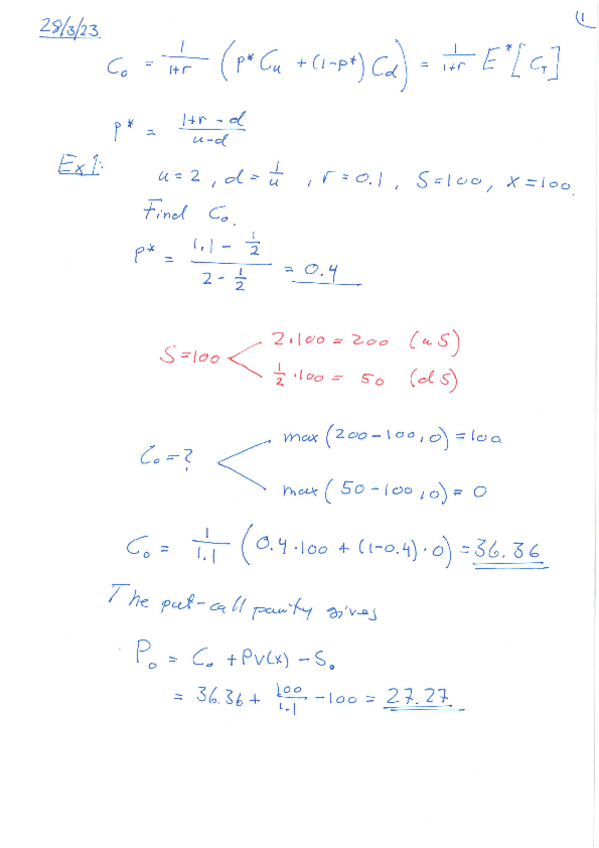 28/3/23
1
C₀ = 1/(1+r) (p* Cu + (1-p*) Cd) = 1/(1+r) E*[C_T]
p* = (1+r-d)/(u-d)
Ex1: u=2, d=1/u, r=0.1, S=100, X=100.
Find C₀.
p* = (1,1 - 1/2)/(2 - 1/2) = 0.4
2·100 = 200 (uS)
S=100
1/2·100 = 50 (dS)
max(200-100,0)=100
C₀=?
max(50-100,0)=0
C₀ = 1/1.1 (0.4·100 + (1-0.4)·0) = 36.36
The put-call parity gives
P₀ = C₀ + PV(X) - S₀
= 36.36 + 100/1.1 - 100 = 27.27